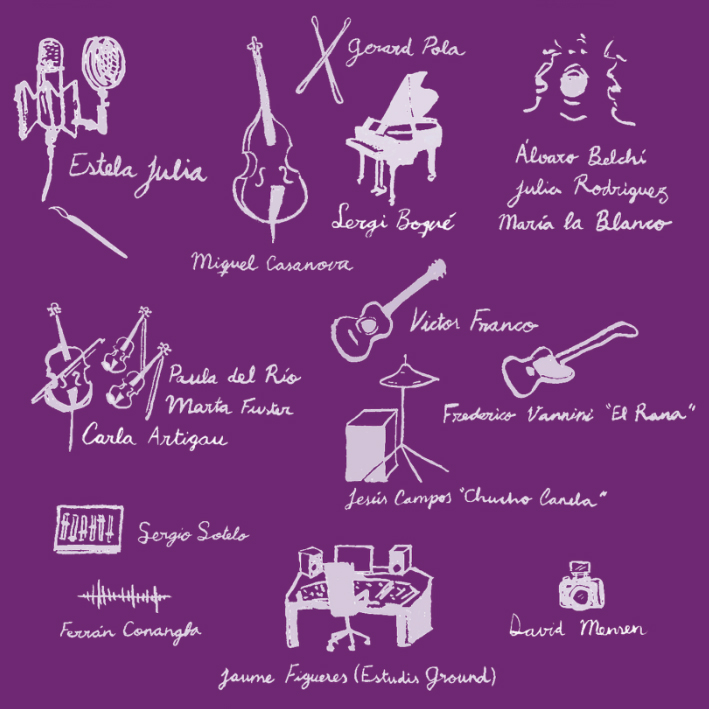 Gerard Pola
Estela Julia
Sergi Boqué
Álvaro Belchí
Julia Rodriguez
María la Blanco
Miguel Casanova
Victor Franco
Paula del Río
Marta Fuster
Carla Artigau
Frederico Vannini "El Rana"
Jesús Campos "Chucho Canela"
Sergio Sotelo
Ferrán Conangla
David Mensen
Jaume Figueres (Estudis Ground)